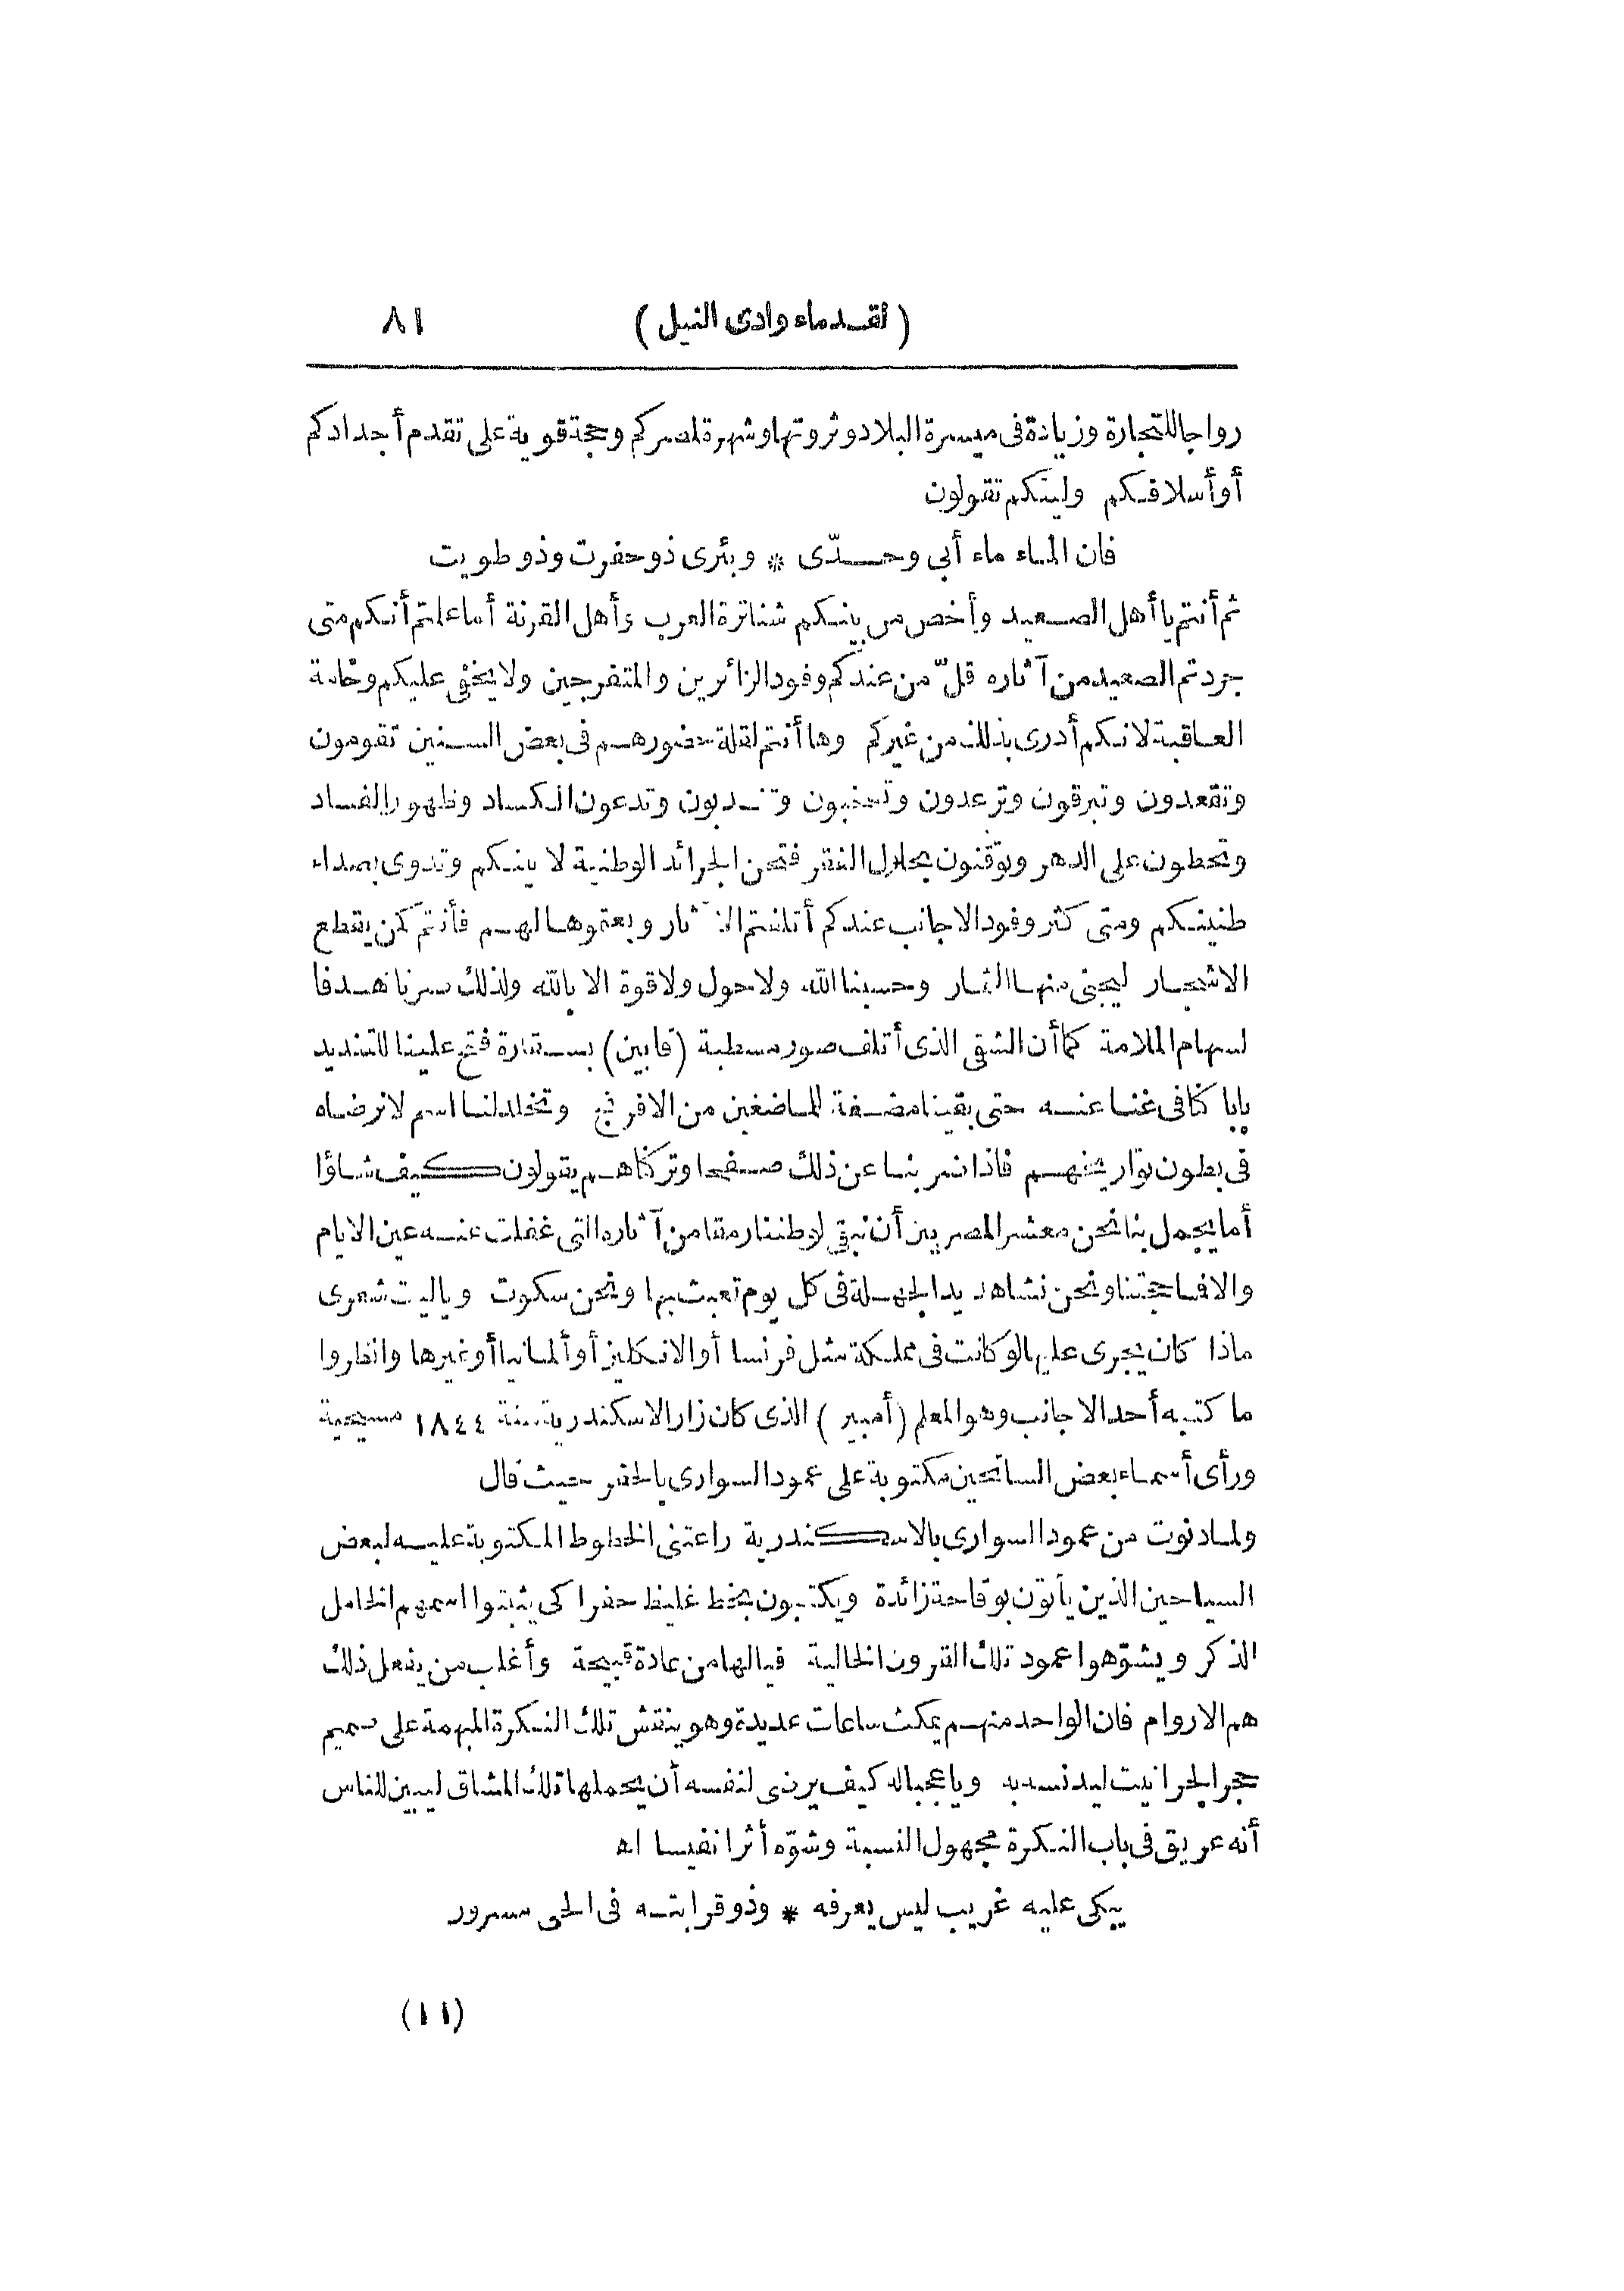 (لقدماء وادى النيل) ٨١
رواجا للتجارة وزيادة فى ميسرة البلاد وثروتها وشهرة لمصركم وحجة قوية على تقدم أجدادكم
أو أسلافكم وليتكم تقولون
فان الماء ماء أبى وجدّى * وبئرى ذو حفرت وذو طويت
ثم أنتم يا أهل الصعيد وأخص من بينكم شناترة العرب وأهل القرنة أما علمتم أنكم متى
جردتم الصعيد من آثاره قلّ من عندكم وفود الزائرين والمتفرجين ولا يخفى عليكم وخامة
العاقبة لانكم أدرى بذلك من غيركم وها أنتم لقلة حضورهم فى بعض السنين تقومون
وتقعدون وتبرقون وترعدون وتنحبون وتندبون وتدعون الكساد وظهور الفساد
وتحطون على الدهر وتوقنون بحلول الفقر فتحن الجرائد الوطنية لانينكم وتدوى بصداء
طنينكم ومتى كثر وفود الاجانب عندكم أتلفتم الآثار وبعتموها لهم فأنتم كمن يقطع
الاشجار ليجنى منها الثمار وحسبنا الله ولا حول ولا قوة الا بالله ولذلك صرنا هدفا
لسهام الملامة كما أن الشقى الذى أتلف صور مسطبة (قابين) بسقارة فتح علينا للتنديد
بابا كنا فى غنا عنه حتى بقينا مضغة للماضغين من الافرنج وتخلد لنا اسم لا نرضاه
فى بطون تواريخهم فاذا ضربنا عن ذلك صفحا وتركناهم يقولون كيف شاؤا
أما يجمل بنا نحن معشر المصريين أن نبقى لوطننا رمقا من آثاره التى غفلت عنه عين الايام
والا فما حجتنا ونحن نشاهد يد الجهلة فى كل يوم تعبث بها ونحن سكوت ويا ليت شعرى
ماذا كان يجرى عليها لو كانت فى مملكة مثل فرنسا أو الانكليز أو ألمانيا أو غيرها وانظروا
ما كتبه أحد الاجانب وهو المعلم (أمبير) الذى كان زار الاسكندرية سنة ١٨٤٤ مسيحية
ورأى أسماء بعض السائحين مكتوبة على عمود السوارى بالحفر حيث قال
ولما دنوت من عمود السوارى بالاسكندرية راعتنى الخطوط المكتوبة عليه لبعض
السياحين الذين يأتون بوقاحة زائدة ويكتبون بخط غليظ حفرا كى يثبتوا اسمهم الخامل
الذكر ويشوّهوا عمود تلك القرون الخالية فيالها من عادة قبيحة وأغلب من يفعل ذلك
هم الاروام فان الواحد منهم يمكث ساعات عديدة وهو ينقش تلك النكرة المبهمة على صميم
حجر الجرانيت ليدنسه به ويا عجبا له كيف يرضى لنفسه أن يحملها تلك المشاق ليبين للناس
أنه عريق فى باب النكرة مجهول النسبة وشوّه أثرا نفيسا اه
يبكى عليه غريب ليس يعرفه * وذو قرابته فى الحى مسرور
(١١)